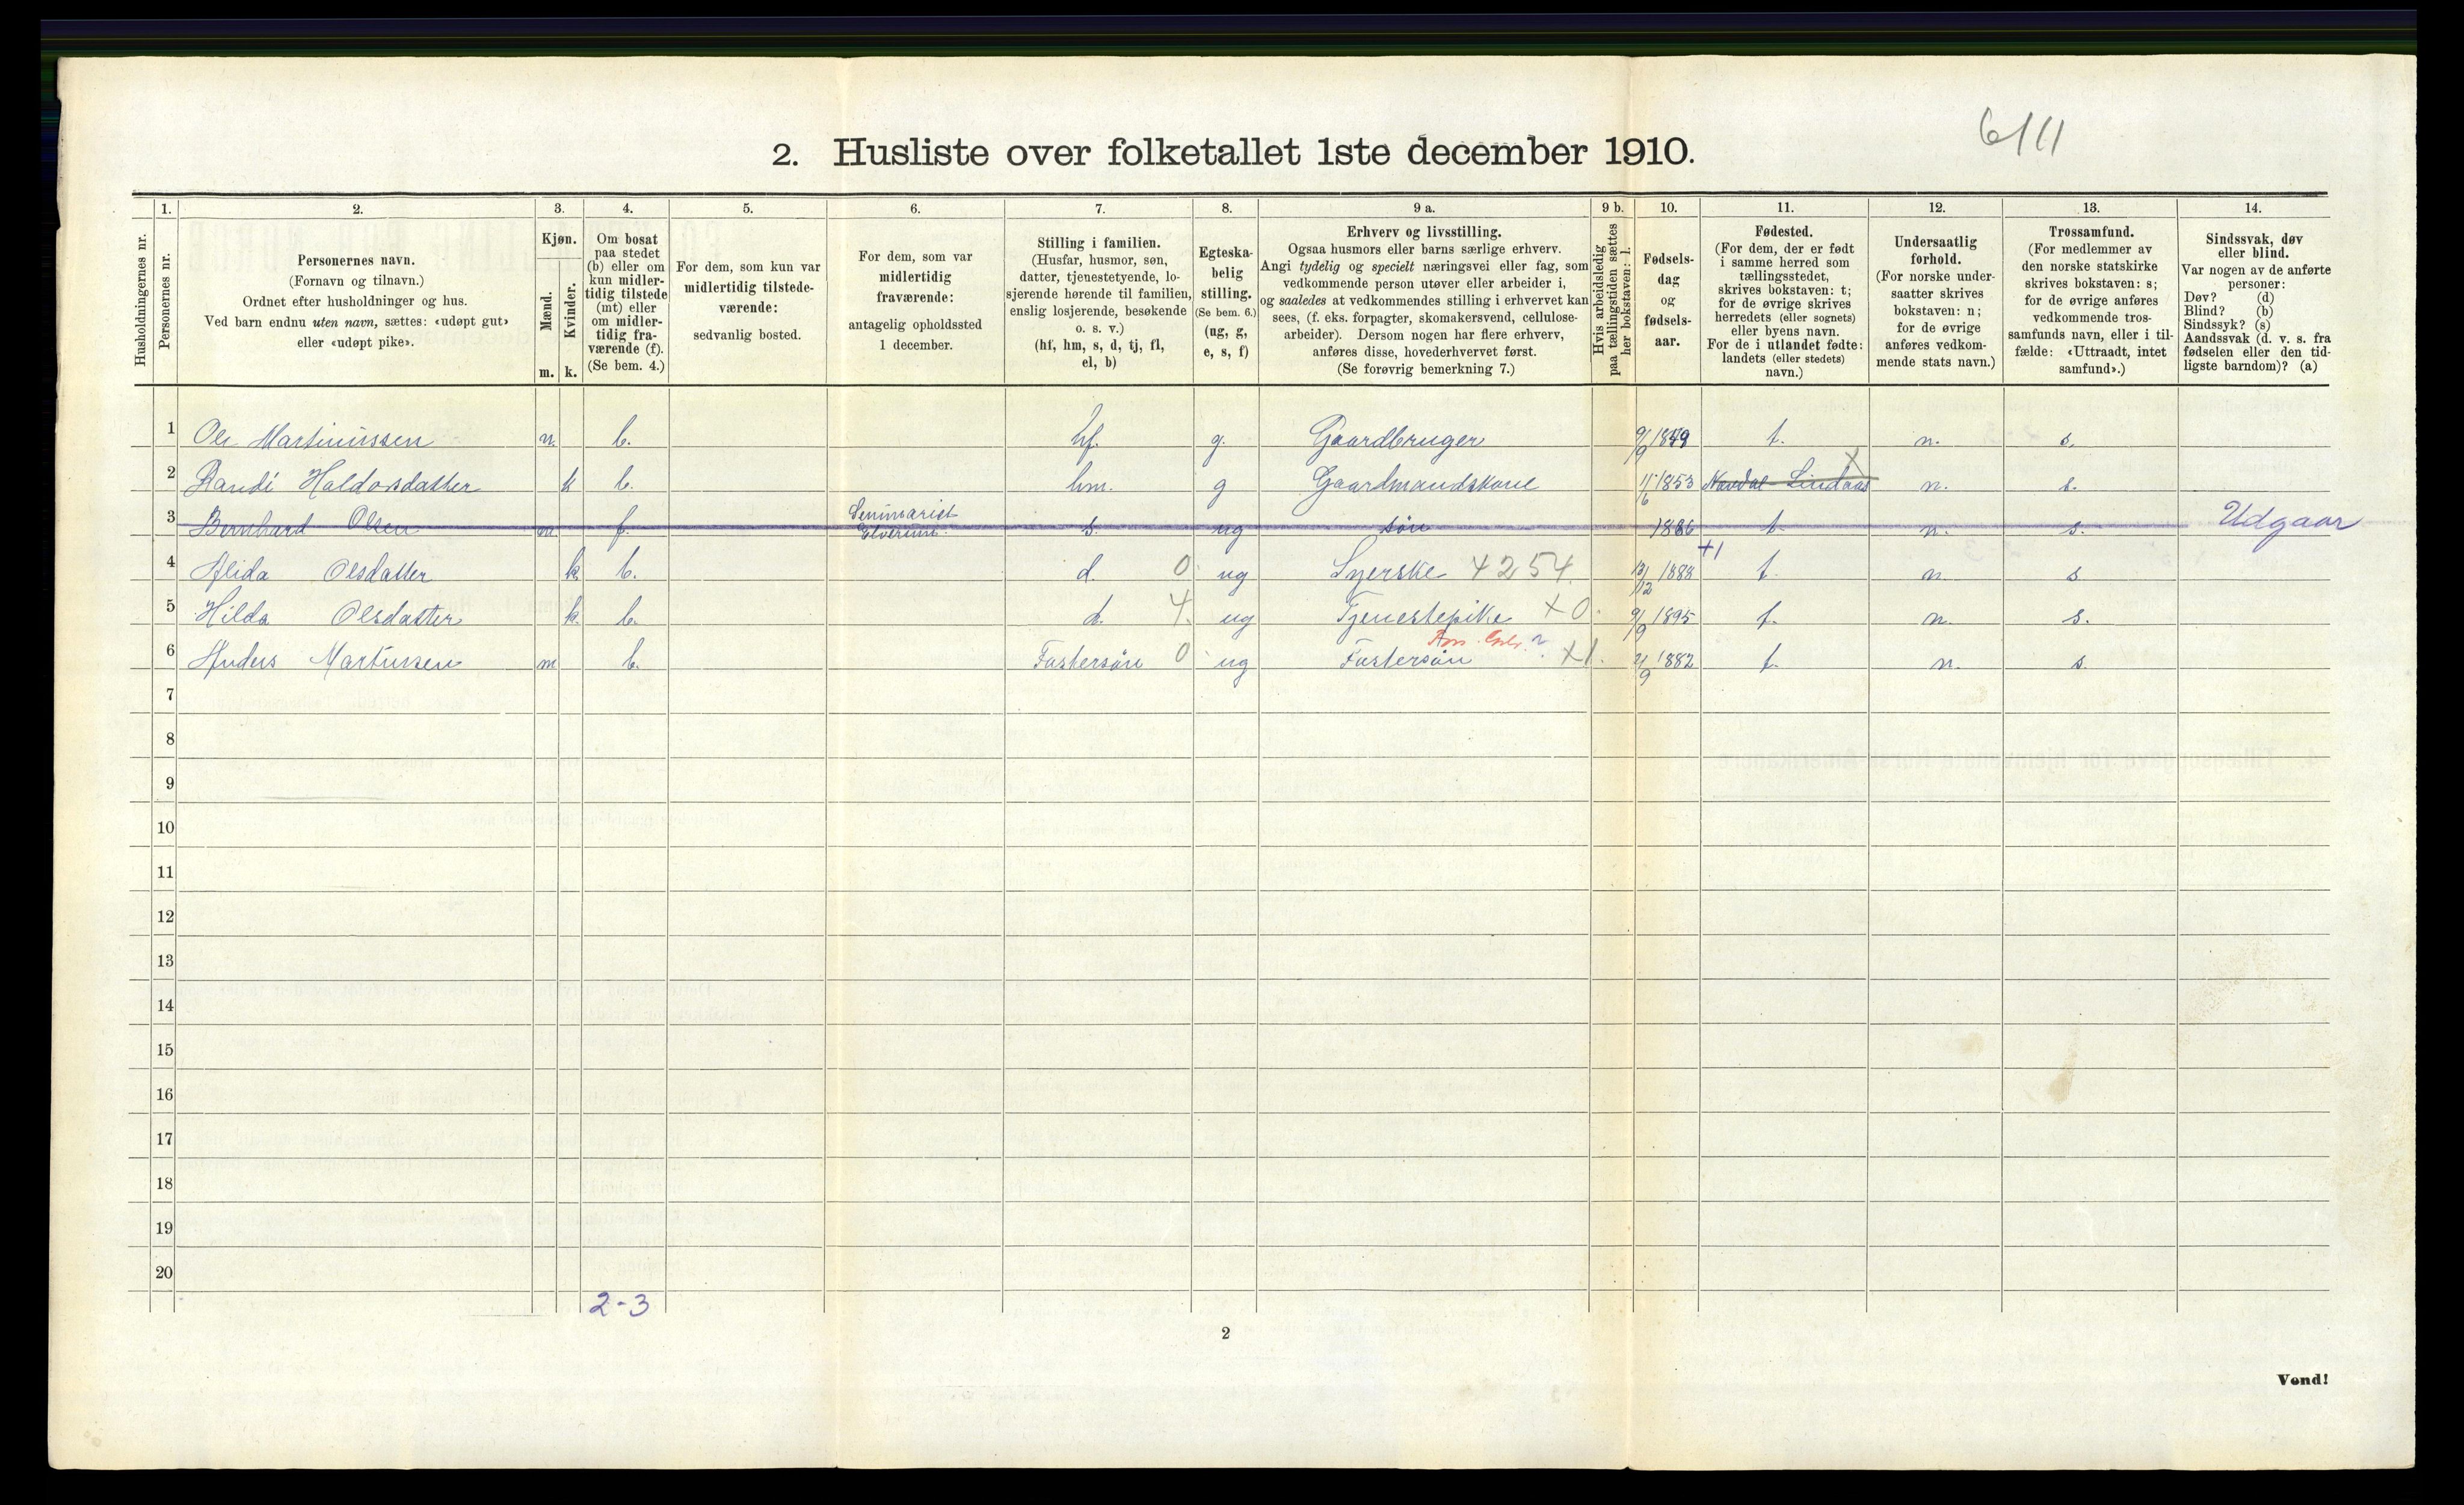 6/11
2. Husliste over folketallet 1ste december 1910.
Husholdningernes nr.
1.
Personernes nr.
2.
Personernes navn.
(Fornavn og tilnavn.)
Ordnet efter husholdninger og hus.
Ved barn endnu uten navn, sættes: «udøpt gut»
eller «udøpt pike».
3.
Kjøn.
Mænd.
Kvinder.
m. k.
4.
Om bosat
paa stedet
(b) eller om
kun midler-
tidig tilstede
(mt) eller
om midler-
tidig fra-
værende (f).
(Se bem. 4.)
5.
For dem, som kun var
midlertidig tilstede-
værende:
sedvanlig bosted.
6.
For dem, som var
midlertidig
fraværende:
antagelig opholdssted
1 december.
7.
Stilling i familien.
(Husfar, husmor, søn,
datter, tjenestetyende, lo-
sjerende hørende til familien,
enslig losjerende, besøkende
o. s. v.)
(hf, hm, s, d, tj, fl,
el, b)
8.
Egteska-
belig
stilling.
(Se bem. 6.)
(ug, g,
e, s, f)
9 a.
Erhverv og livsstilling.
Ogsaa husmors eller barns særlige erhverv.
Angi tydelig og specielt næringsvei eller fag, som
vedkommende person utøver eller arbeider i,
og saaledes at vedkommendes stilling i erhvervet kan
sees, (f. eks. forpagter, skomakersvend, cellulose-
arbeider). Dersom nogen har flere erhverv,
anføres disse, hovederhvervet først.
(Se forøvrig bemerkning 7.)
9 b.
Hvis arbeidsledig
paa tællingstiden sættes
her bokstaven: l.
10.
Fødsels-
dag
og
fødsels-
aar.
11.
Fødested.
(For dem, der er født
i samme herred som
tællingsstedet,
skrives bokstaven: t;
for de øvrige skrives
herredets (eller sognets)
eller byens navn.
For de i utlandet fødte:
landets (eller stedets)
navn.)
12.
Undersaatlig
forhold.
(For norske under-
saatter skrives
bokstaven: n;
for de øvrige
anføres vedkom-
mende stats navn.)
13.
Trossamfund.
(For medlemmer av
den norske statskirke
skrives bokstaven: s;
for de øvrige anføres
vedkommende tros-
samfunds navn, eller i til-
fælde: «Uttraadt, intet
samfund».)
14.
Sindssvak, døv
eller blind.
Var nogen av de anførte
personer:
Døv? (d)
Blind? (b)
Sindssyk? (s)
Aandssvak (d. v. s. fra
fødselen eller den tid-
ligste barndom)? (a)
1 Ole Martinussen m. b. hf. g. Gaardbruger 9/9 1849 t. n. s.
2 Randi Haldorsdatter k b. hm. g Gaardmandskone 11/6 1853 Lindaas X n. s.
3 Bernhard Olsen m. f. Seminarist Elverum s. ug søn 1886 t. n. s. Udgaar
4 Alida Olsdatter k b. d. 0 ug Syerske 4254. 13/12 1888 +1 t. n. s
5 Hilda Olsdatter k. b. d. 4. ug Tjenestepike X0. 9/9 1895 t. n. s.
6 Anders Martinsen m b. Fostersøn 0 ug Fostersøn ? X1. 21/9 1882 t. n. s.
7
8
9
10
11
12
13
14
15
16
17
18
19
20
2-3
2
Vend!